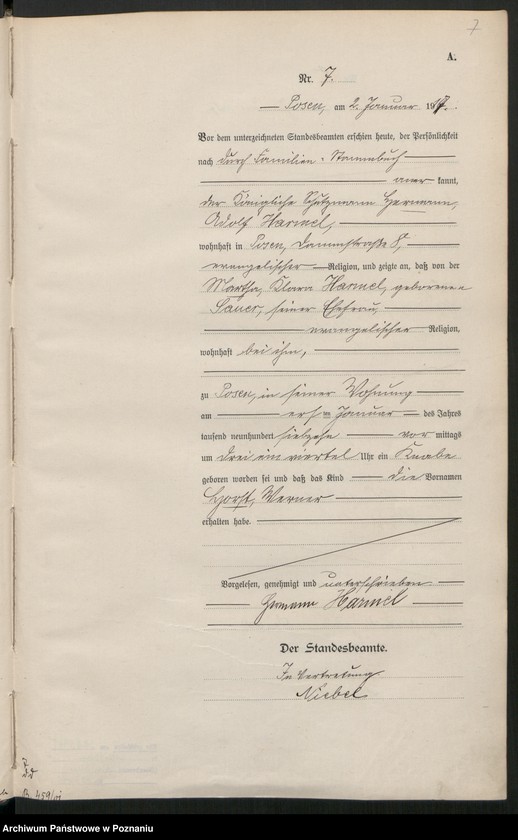 7
A.
Nr. 7.
Posen, am 2. Januar 1917.
Vor dem unterzeichneten Standesbeamten erschien heute, der Persönlichkeit
nach durch Familien-Stammbuch
anerkannt,
der Königliche Schutzmann Hermann
Adolf Harmel,
wohnhaft in Posen, Dammstraße 8,
evangelischer Religion, und zeigte an, daß von der
Martha, Klara Harmel, geborenen
Sauer, seiner Ehefrau,
evangelischer Religion,
wohnhaft bei ihm,
zu Posen, in seiner Wohnung
am ersten Januar des Jahres
tausend neunhundert siebzehn vormittags
um drei ein viertel Uhr ein Knabe
geboren worden sei und daß das Kind die Vornamen
Horst, Werner
erhalten habe.
Vorgelesen, genehmigt und unterschrieben
Hermann Harmel
Der Standesbeamte.
In Vertretung
Niebel
B. 459/
Archiwum Państwowe w Poznaniu